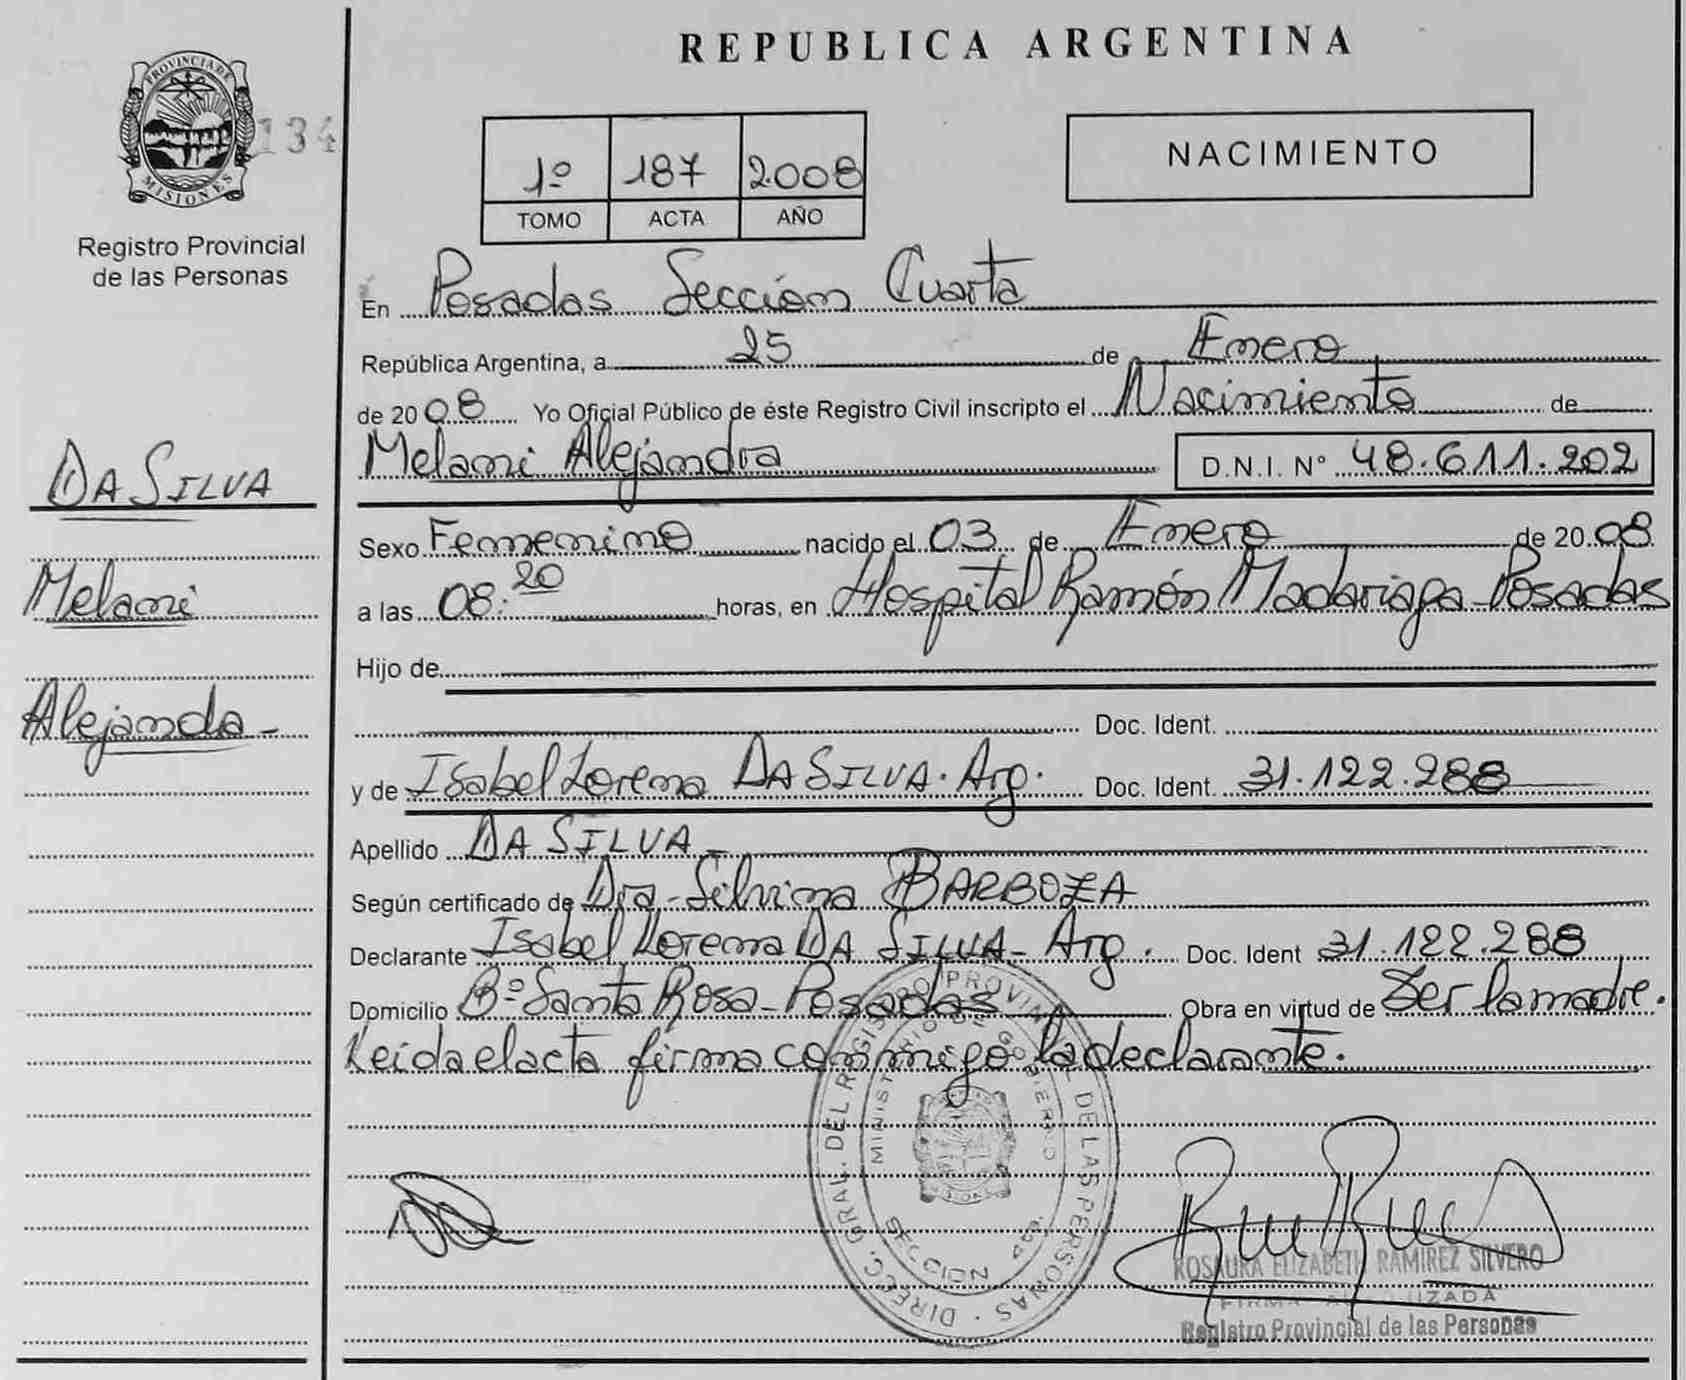 REPUBLICA ARGENTINA
PROVINCIA DE
MISIONES
134
Registro Provincial
de las Personas
1º 187 2008
TOMO ACTA AÑO
NACIMIENTO
DA SILVA
Melani
Alejanda -
En Posadas Sección Cuarta
República Argentina, a 25 de Enero
de 2008 Yo Oficial Público de éste Registro Civil inscripto el Nacimiento de
Melani Alejandra D.N.I. N° 48.611.202
Sexo Femenino nacido el 03 de Enero de 2008
a las 08:20 horas, en Hospital Ramón Madariaga - Posadas
Hijo de
Doc. Ident.
y de Isabel Lorena DA SILVA. Arg. Doc. Ident. 31.122.288
Apellido DA SILVA -
Según certificado de Dra - Silvina BARBOZA
Declarante Isabel Lorena DA SILVA - Arg. Doc. Ident 31.122.288
Domicilio Bº Santa Rosa - Posadas Obra en virtud de Ser la madre.
Leída el acta firma conmigo la declarante.
DIREC. GRAL. DEL REGISTRO PROVINCIAL DE LAS PERSONAS
MINISTERIO DE GOBIERNO
SECCION 4ta.
MISIONES
ROSAURA ELIZABETH RAMIREZ SILVERO
FIRMA AUTORIZADA
Registro Provincial de las Personas